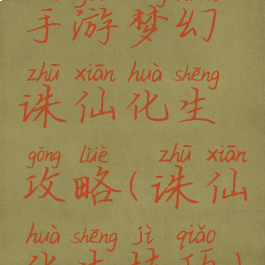 手游梦幻
zhū xiān huà shēng
诛仙化生
gōng lüè zhū xiān
攻略(诛仙
huà shēng jì qiǎo
化生技巧)